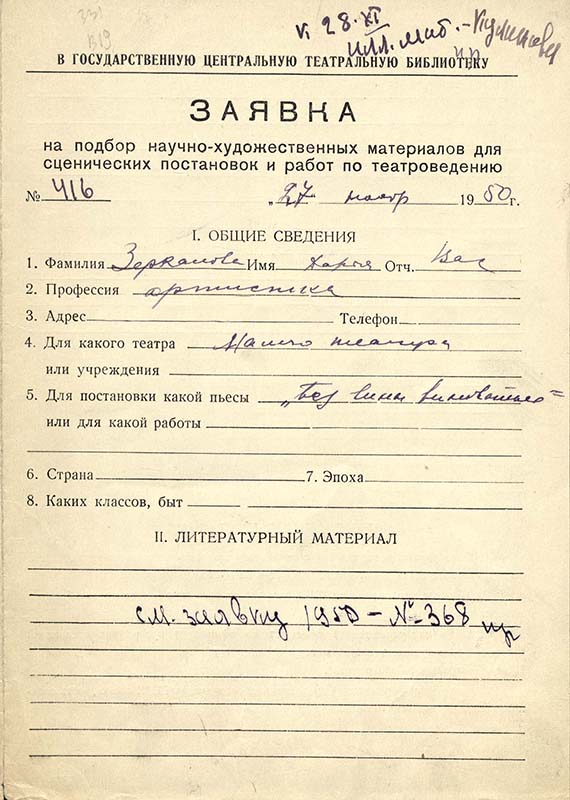 331
В19
V 28.XI
илл. мат. -
В ГОСУДАРСТВЕННУЮ ЦЕНТРАЛЬНУЮ ТЕАТРАЛЬНУЮ БИБЛИОТЕКУ
ЗАЯВКА
на подбор научно-художественных материалов для
сценических постановок и работ по театроведению
№ 416 „27" ноябр 1950г.
I. ОБЩИЕ СВЕДЕНИЯ
1. Фамилия Зеркалова Имя Дарья Отч. Вас
2. Профессия артистка
3. Адрес Телефон
4. Для какого театра Малого театра
или учреждения
5. Для постановки какой пьесы „Без вины виноватые"
или для какой работы
6. Страна 7. Эпоха
8. Каких классов, быт
II. ЛИТЕРАТУРНЫЙ МАТЕРИАЛ
см. заявку 1950 - № 368